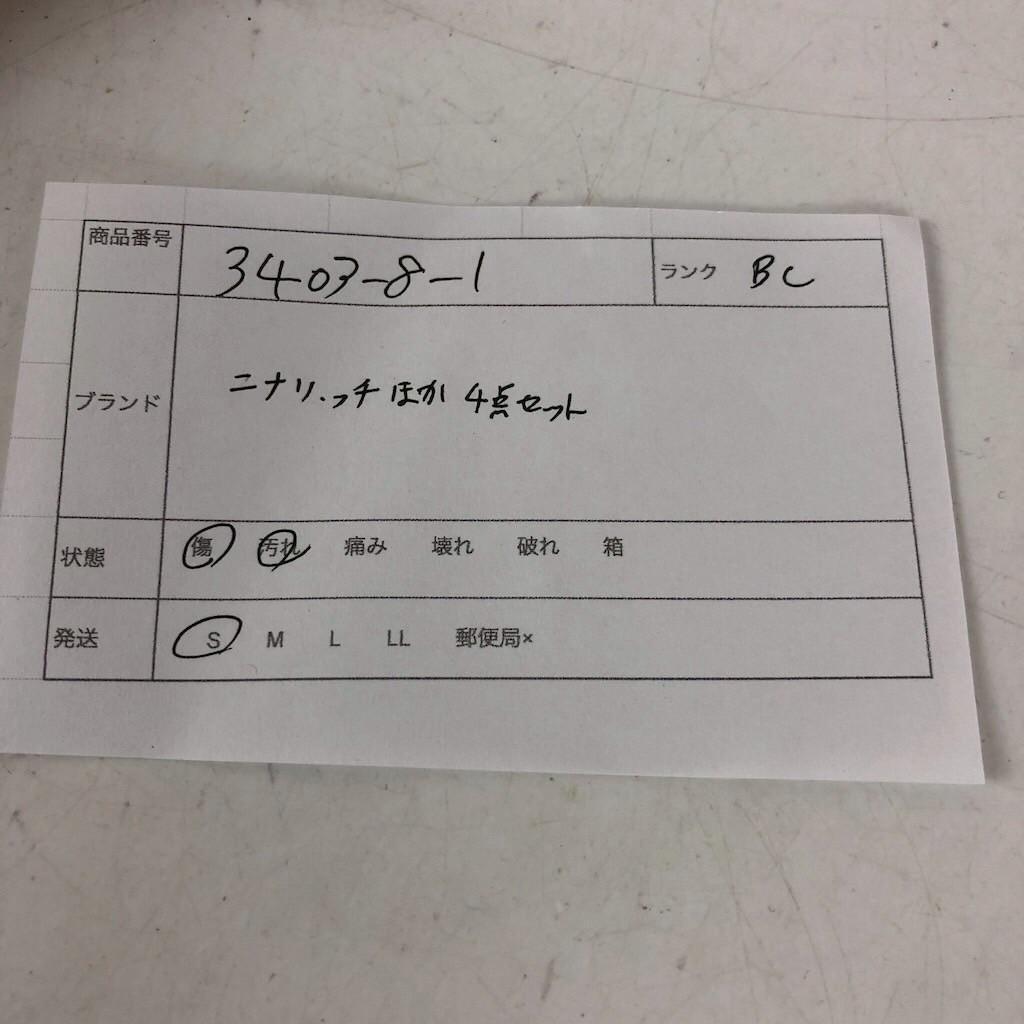 商品番号 3403-8-1 ランク BC
ブランド ニナリッチほか 4点セット
状態 傷 汚れ 痛み 壊れ 破れ 箱
発送 S M L LL 郵便局×